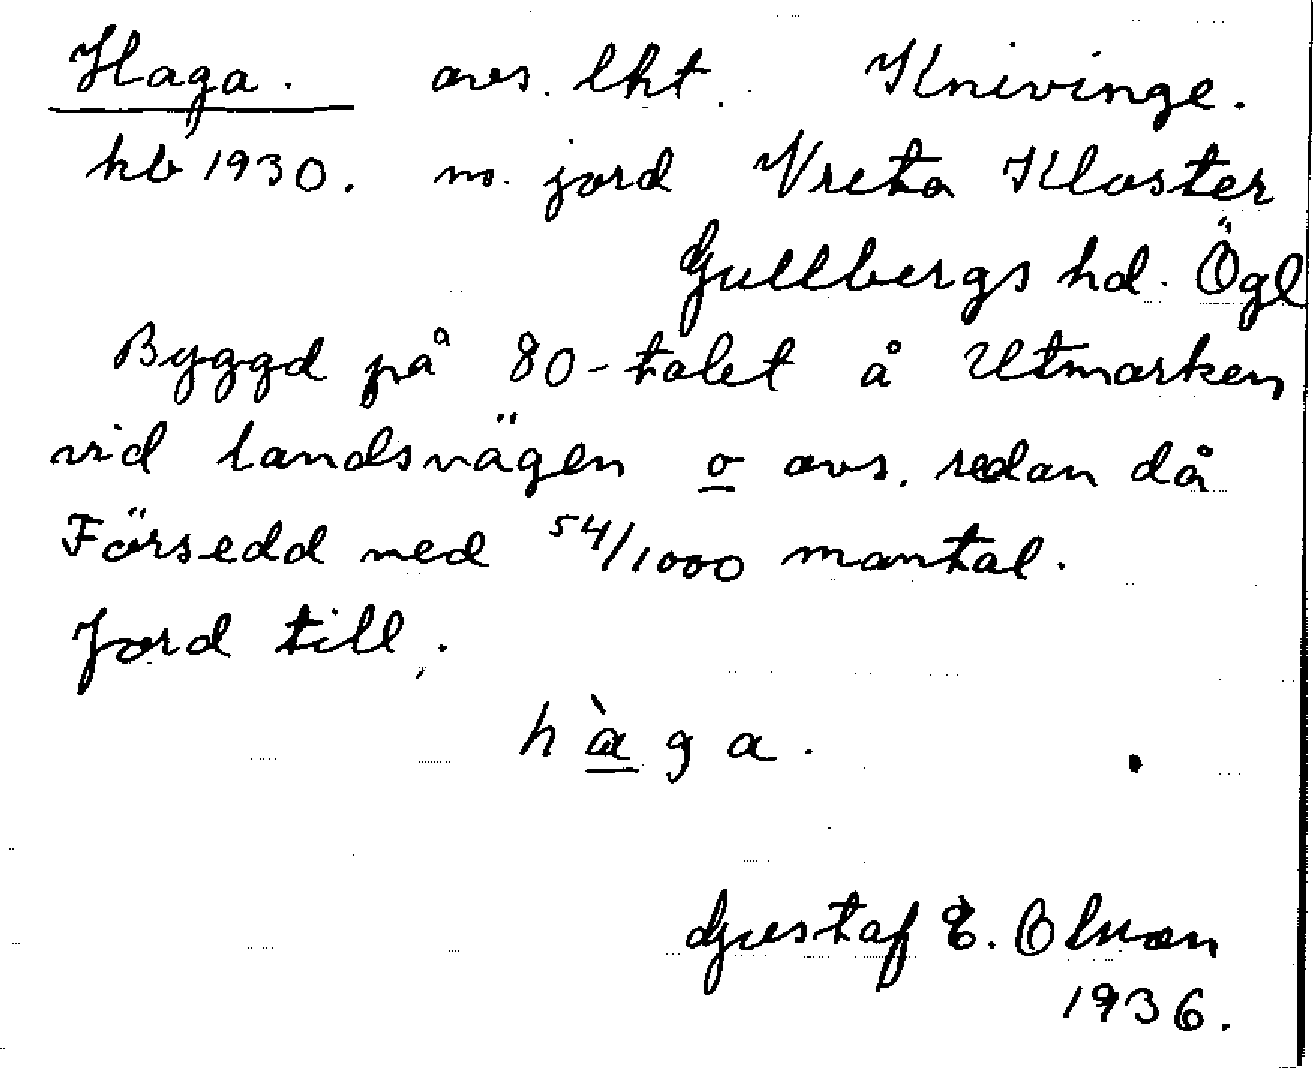 Haga. avs. lht. Knivinge.
kb 1930. m. jord Vreta Kloster
Gullbergs hd. Ögl
Byggd på 80-talet å Utmarken
vid landsvägen o avs. redan då
Försedd med 54/1000 mantal.
Jord till.
hàga.
Gustaf E. Olson
1936.